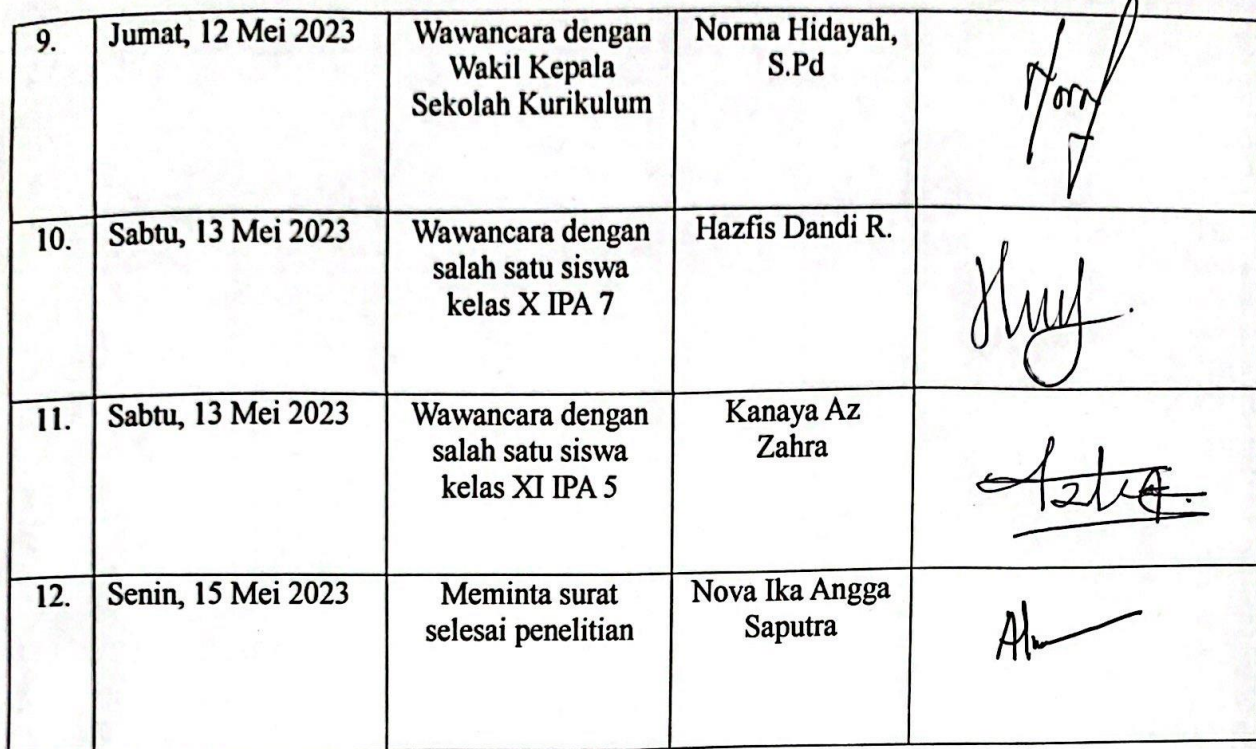 9.
Jumat, 12 Mei 2023
Wawancara dengan
Wakil Kepala
Sekolah Kurikulum
Norma Hidayah,
S.Pd
10.
Sabtu, 13 Mei 2023
Wawancara dengan
salah satu siswa
kelas X IPA 7
Hazfis Dandi R.
11.
Sabtu, 13 Mei 2023
Wawancara dengan
salah satu siswa
kelas XI IPA 5
Kanaya Az
Zahra
12.
Senin, 15 Mei 2023
Meminta surat
selesai penelitian
Nova Ika Angga
Saputra